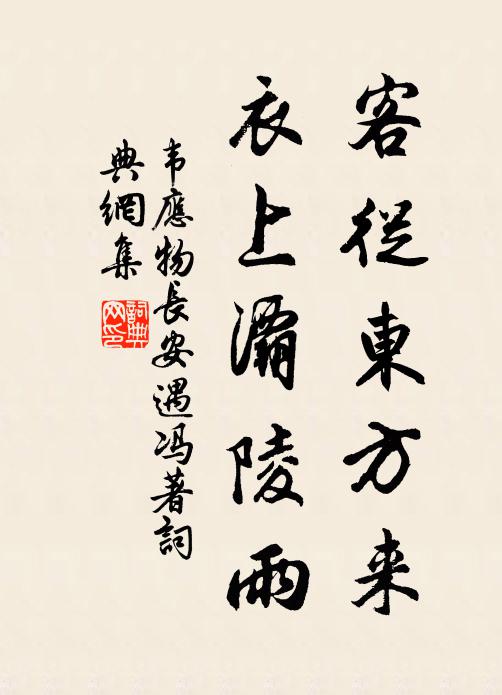 客從東方来
衣上灞陵雨
韦應物長安遇冯著詞
典網集
詞典网印